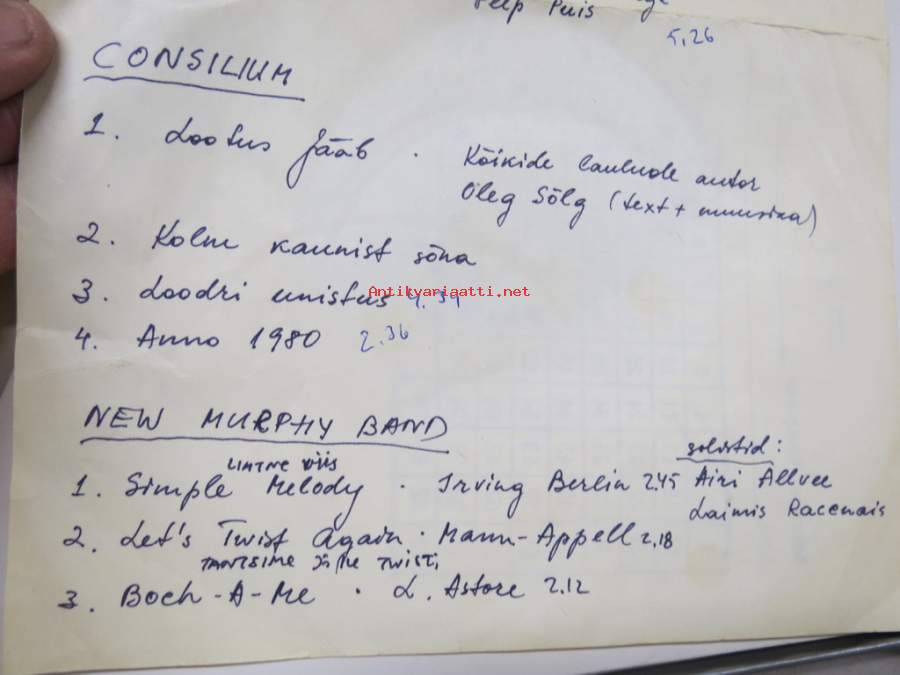 Peep Puis
5,26
CONSILIUM
1. Lootus jääb . Kõikide laulude autor
Oleg Sõlg (text + muusika)
2. Kolm kaunist sõna
3. Loodri unistus 4.34
Antikyariaatti.net
4. Anno 1980 2.36
NEW MURPHY BAND
solistid:
LIHTNE VIIS
1. Simple Melody . Irving Berlin 2.45 Airi Allvee
Laimis Racenais
2. Let's Twist Again . Mann-Appell 2,18
TANTSIME JÄLLE TWISTI
3. Boch-A-Me . L. Astore 2.12